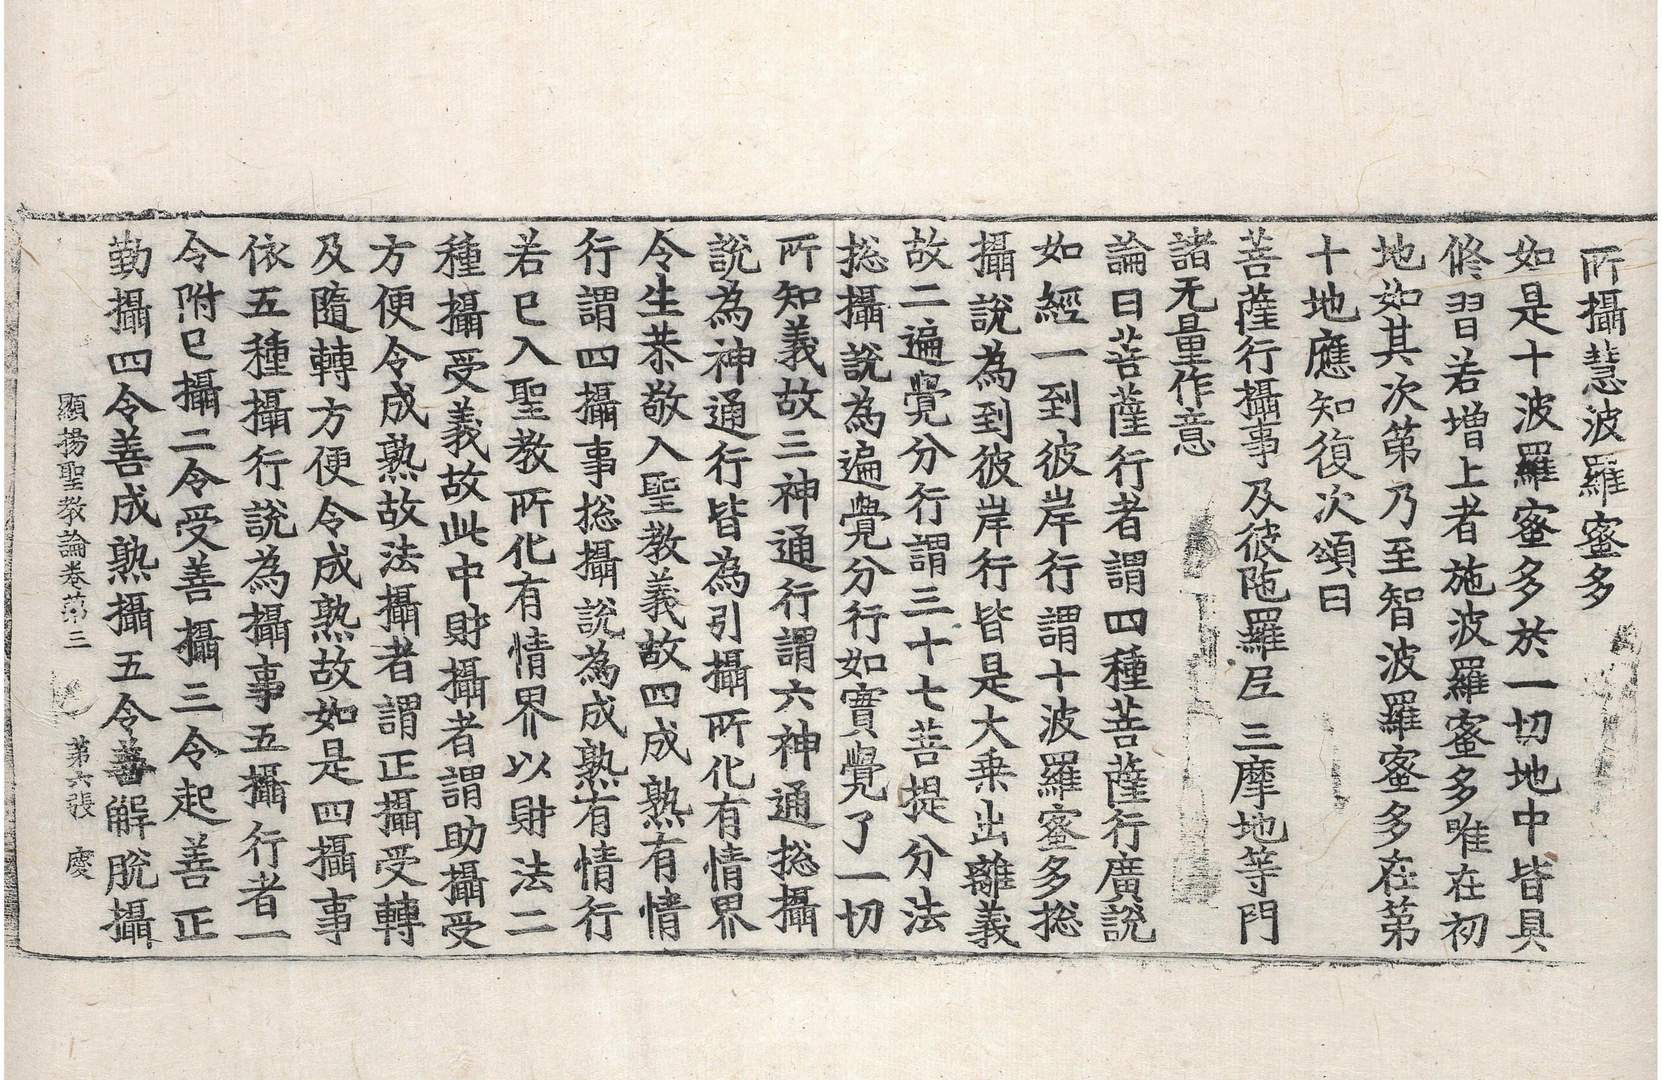 所攝慧波羅蜜多
如是十波羅蜜多於一切地中皆具
修習若增上者施波羅蜜多唯在初
地如其次第乃至智波羅蜜多在第
十地應知復次頌曰
菩薩行攝事及彼陁羅尼三摩地等門
諸无量作意
論曰菩薩行者謂四種菩薩行廣說
如經一到彼岸行謂十波羅蜜多捴
攝說為到彼岸行皆是大乗出離義
故二遍覺分行謂三十七菩提分法
捴攝說為遍覺分行如實覺了一切
所知義故三神通行謂六神通捴攝
說為神通行皆為引攝所化有情界
令生恭敬入聖教義故四成熟有情
行謂四攝事捴攝說為成熟有情行
若已入聖教所化有情界以財法二
種攝受義故此中財攝者謂助攝受
方便令成熟故法攝者謂正攝受轉
及隨轉方便令成熟故如是四攝事
依五種攝行說為攝事五攝行者一
令附已攝二令受善攝三令起善正
勤攝四令善成熟攝五令善解脫攝
顯揚聖教論卷第三 第六張 慶